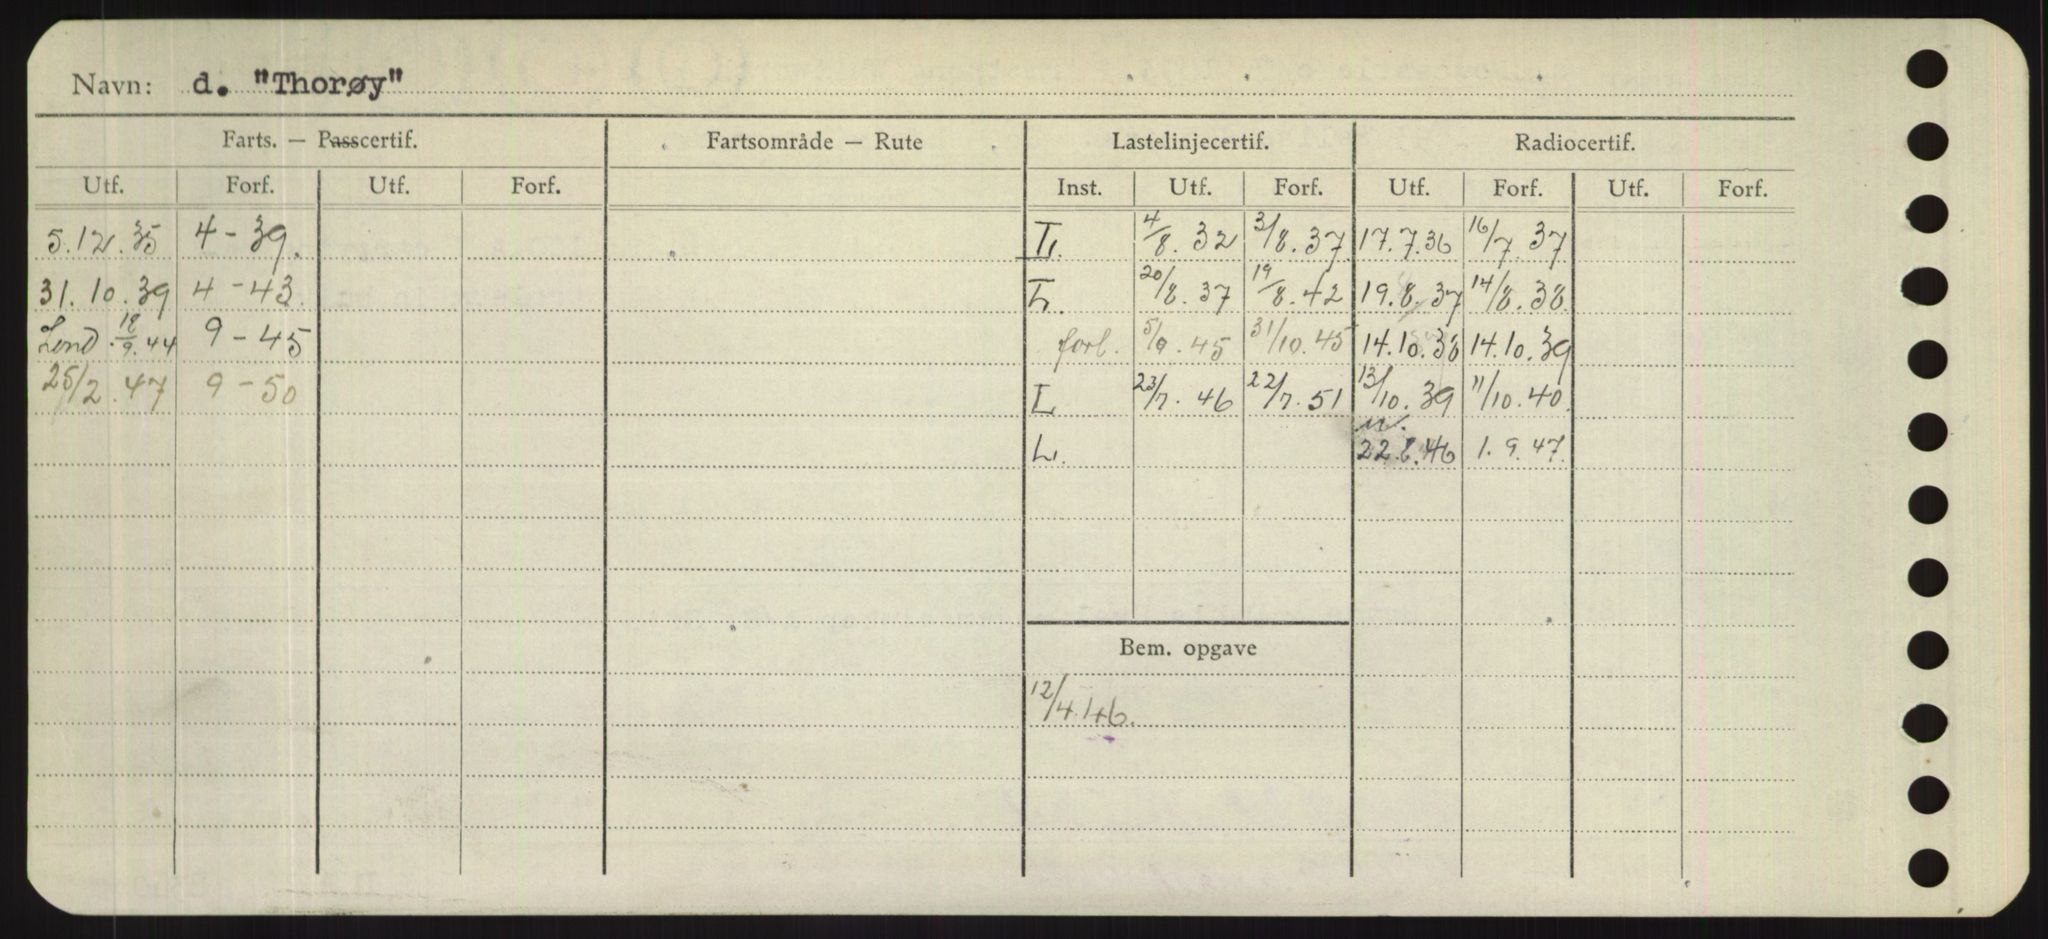 Navn: d. "Thorøy"
Farts. — Passcertif. Fartsområde — Rute Lastelinjecertif. Radiocertif.
Utf. Forf. Utf. Forf. Inst. Utf. Forf. Utf. Forf. Utf. Forf.
5.12.35 4-39. L. 4/8.32 3/8.37 17.7.36 16/7 37
31.10.39 4-43. L. 20/8.37 19/8.42 19.8.37 14/8.38
Lond. 18/9.44 9-45 forl. 5/9.45 31/10.45 14.10.38 14.10.39
25/2.47 9-50 L 23/7.46 22/7.51 13/10.39 11/10.40.
L. 22.8.46 1.9.47.
Bem. opgave
12/4.46.